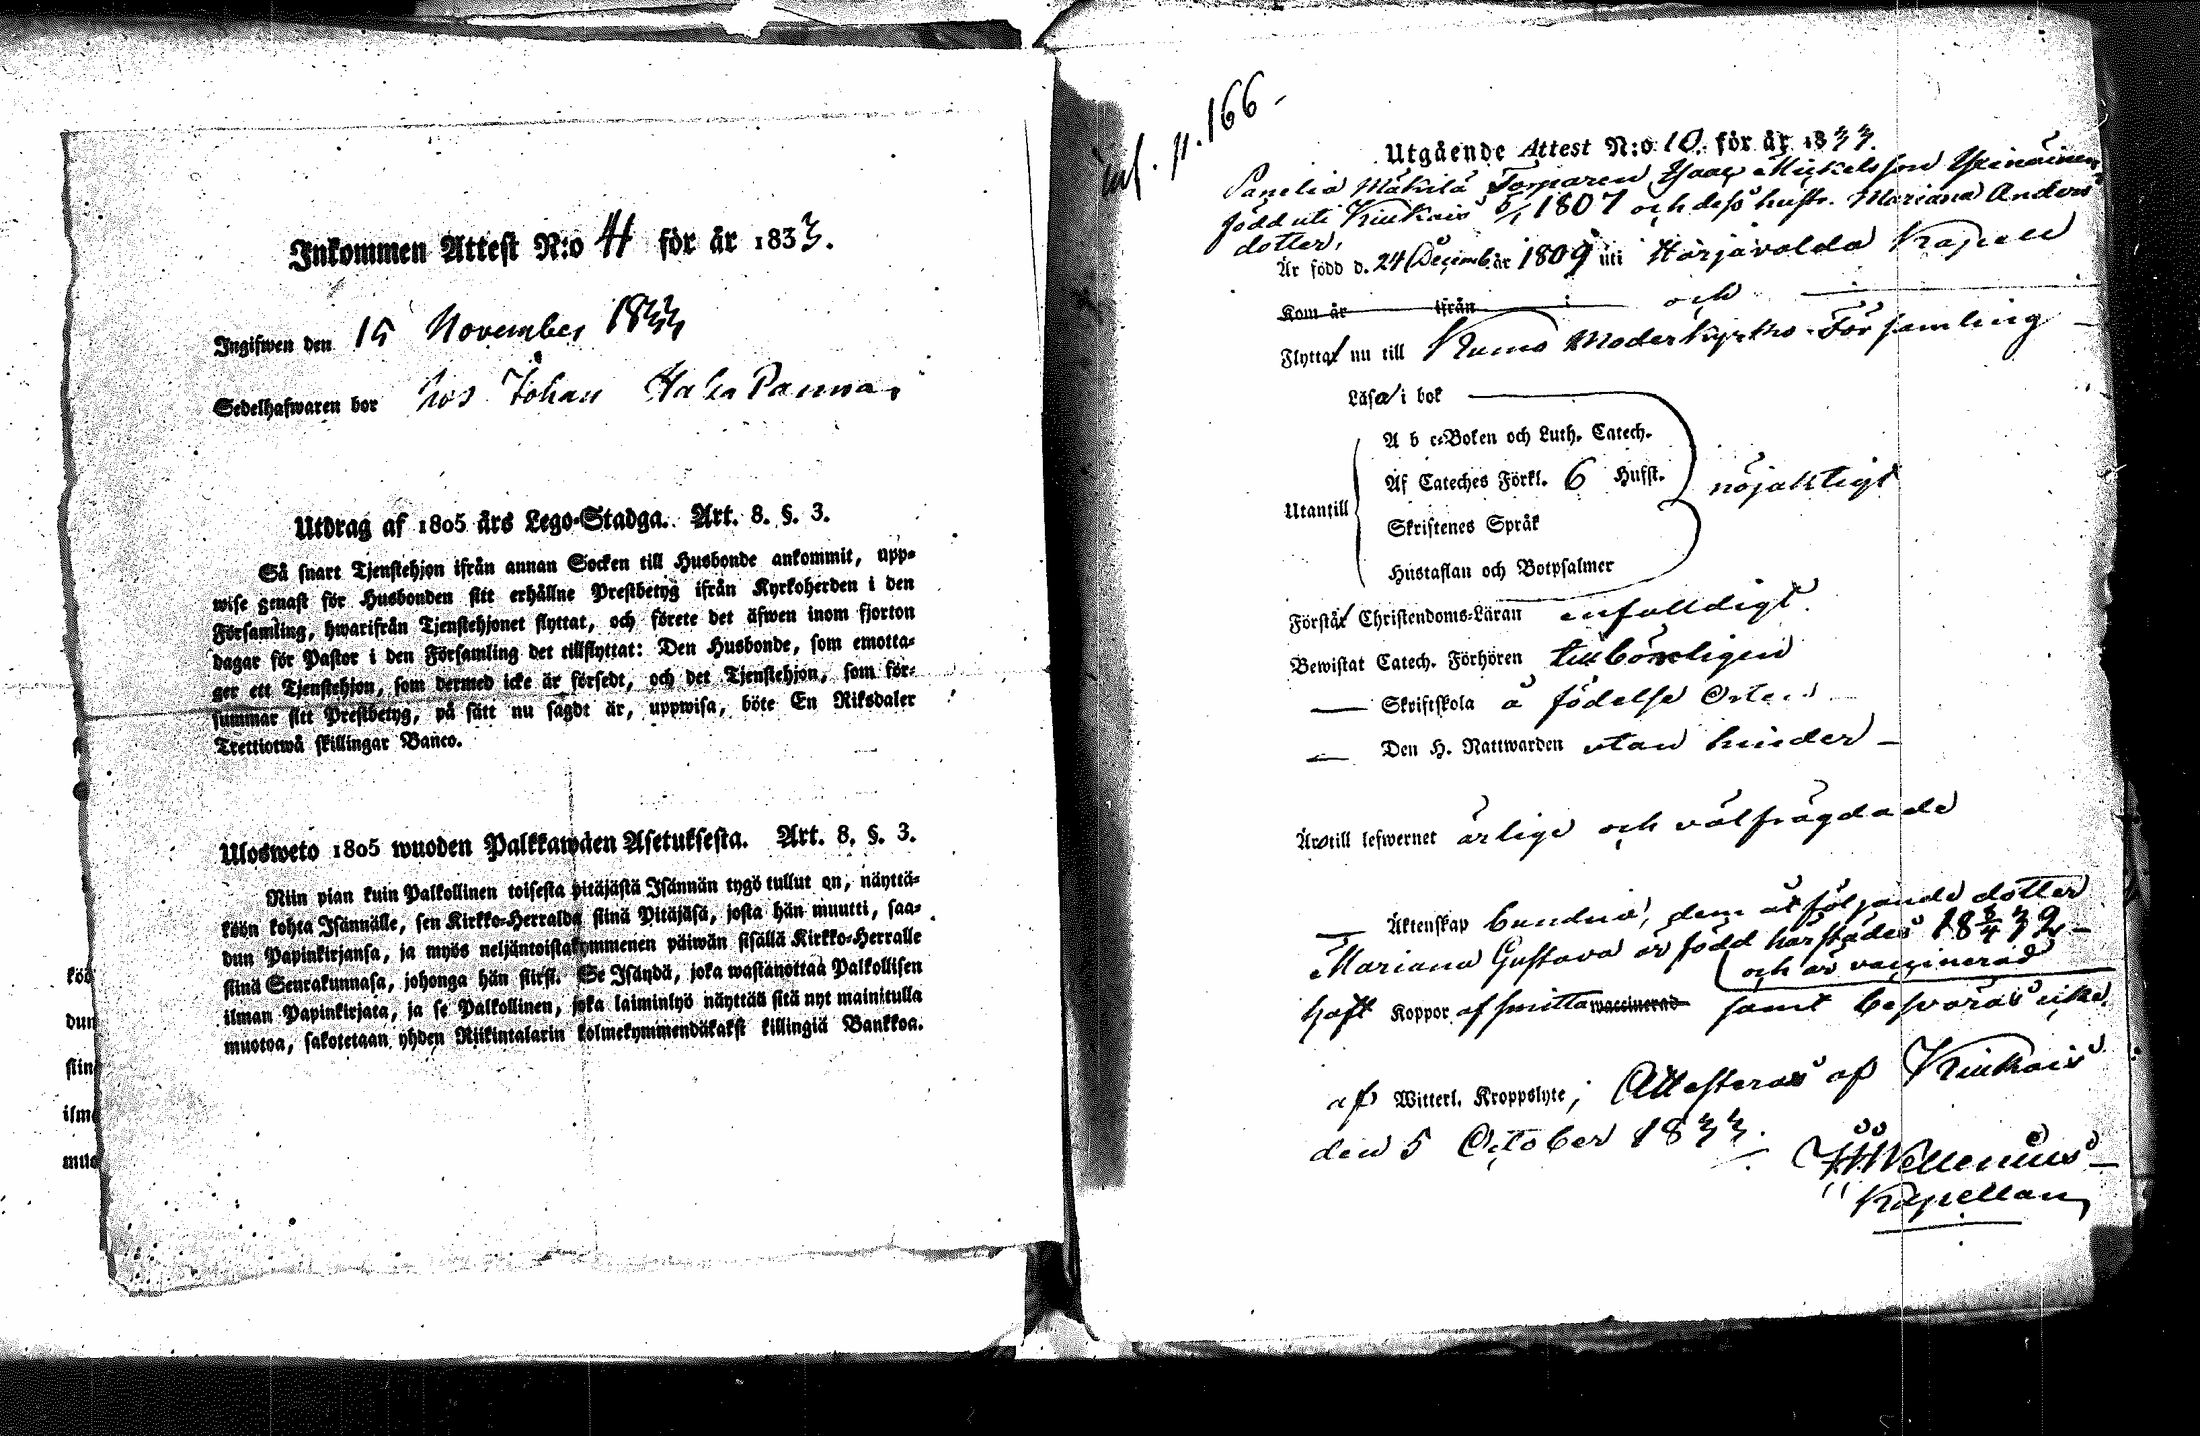 Inkommen Attest N:o 4 för år 1833.
Ingifwen den 15 November 1833
Sedelhafwaren bor hos Johan
Utdrag af 1805 års Lego-Stadga. Art. 8. §. 3.
Så snart Tjenstehjon ifrån annan Socken till Husbonde ankommit, upp-
wise genast för Husbonden sitt erhållne Prestbetyg ifrån Kyrkoherden i den
Församling, hwarifrån Tjenstehjonet flyttat, och förete det äfwen inom fjorton
dagar för Pastor i den Församling det tillflyttat: Den Husbonde, som emotta-
ger ett Tjenstehjon, som dermed icke är försedt, och det Tjenstehjon, som för-
summar sitt Prestbetyg, på sätt nu sagdt är, uppwisa, böte En Riksdaler
Trettiotwå skillingar Banco.
Ulosweto 1805 wuoden Palkkawäen Asetuksesta. Art. 8. §. 3.
Niin pian kuin Palkollinen toisesta pitäjästä Isännän tygö tullut on, näyttä-
köön kohta Isännälle, sen Kirkko-Herralda siinä Pitäjäsä, josta hän muutti, saa-
dun Papinkirjansa, ja myös neljäntoistakymmenen päiwän sisällä Kirkko-Herralle
siinä Seurakunnasa, johonga hän siirsi. Se Isändä, joka wastanottaa Palkollisen
ilman Papinkirjata, ja se Palkollinen, joka laiminlyö näyttää sitä nyt mainitulla
muotoa, sakotetaan yhden Riikintalarin kolmekymmendäkaksi killingiä Bankkoa.
köö
dun
siinä
ilma
muo
inf. p. 166
Utgående Attest N:o 10. för år 1833.
Panelia Mäkilä Torparen Isaac Michelsson
född uti Kiukais 5/1 1807 och dess hustr. Mariana Anders
dotter,
Är född d. 24 Decemb. år 1809 uti Harjavalda Kapell
Kom år ifrån och
Flyttat nu till Kumo Moderkyrko-Församling
Läsa i bok
A b c-Boken och Luth. Catech.
Af Cateches Förkl. 6 Hufst. nöjaktigt
Utantill
Skriftenes Språk
Hustaflan och Botpsalmer
Förstår Christendoms-Läran enfalldigt.
Bewistat Catech. Förhören tillbörligen
— Skriftskola å födelse Orten
— Den H. Nattwarden utan hinder —
Äro till lefwernet ärlige och välfrägdade
— Äktenskap bundna, dem åtföljande dotter
Mariana Gustava är född härstädes 18 5/4 32 —
och är vaccinerad
haft Koppor af smitta waccinerad samt besväras icke
af Witterl. Kroppslyte; Attesteras af Kiukais
den 5 October 1833.
Wellenius —
Kapellan